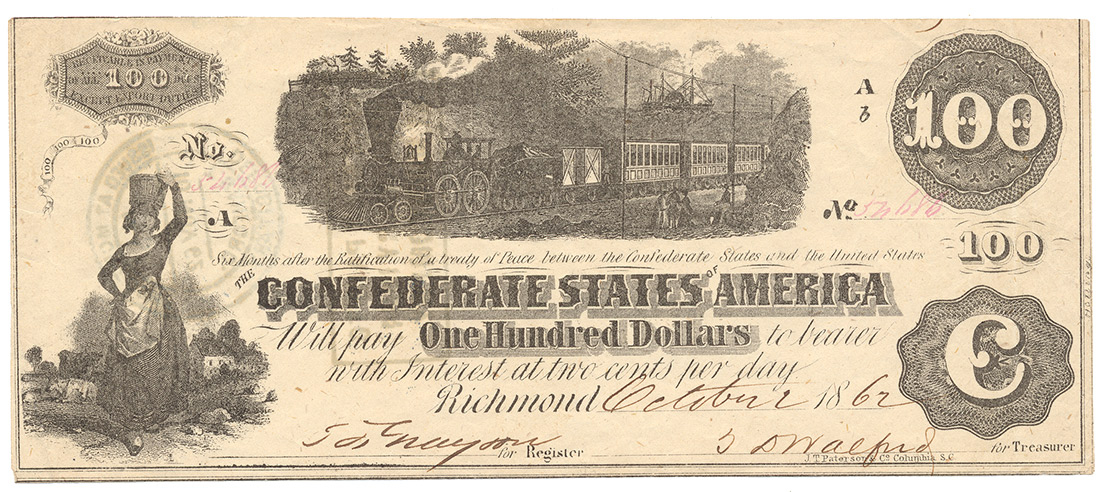 RECEIVABLE IN PAYMENT
OF ALL 100 DUES
EXCEPT EXPORT DUTIES
100 100 100
No.
54686
A
A
b
100
No 54686
100
Six Months after the Ratification of a treaty of Peace between the Confederate States and the United States
THE CONFEDERATE STATES OF AMERICA
Will pay One Hundred Dollars to bearer
with Interest at two cents per day
Richmond October 2 1862
C
for Register
for Treasurer
J.T. Paterson & Co Columbia S.C.